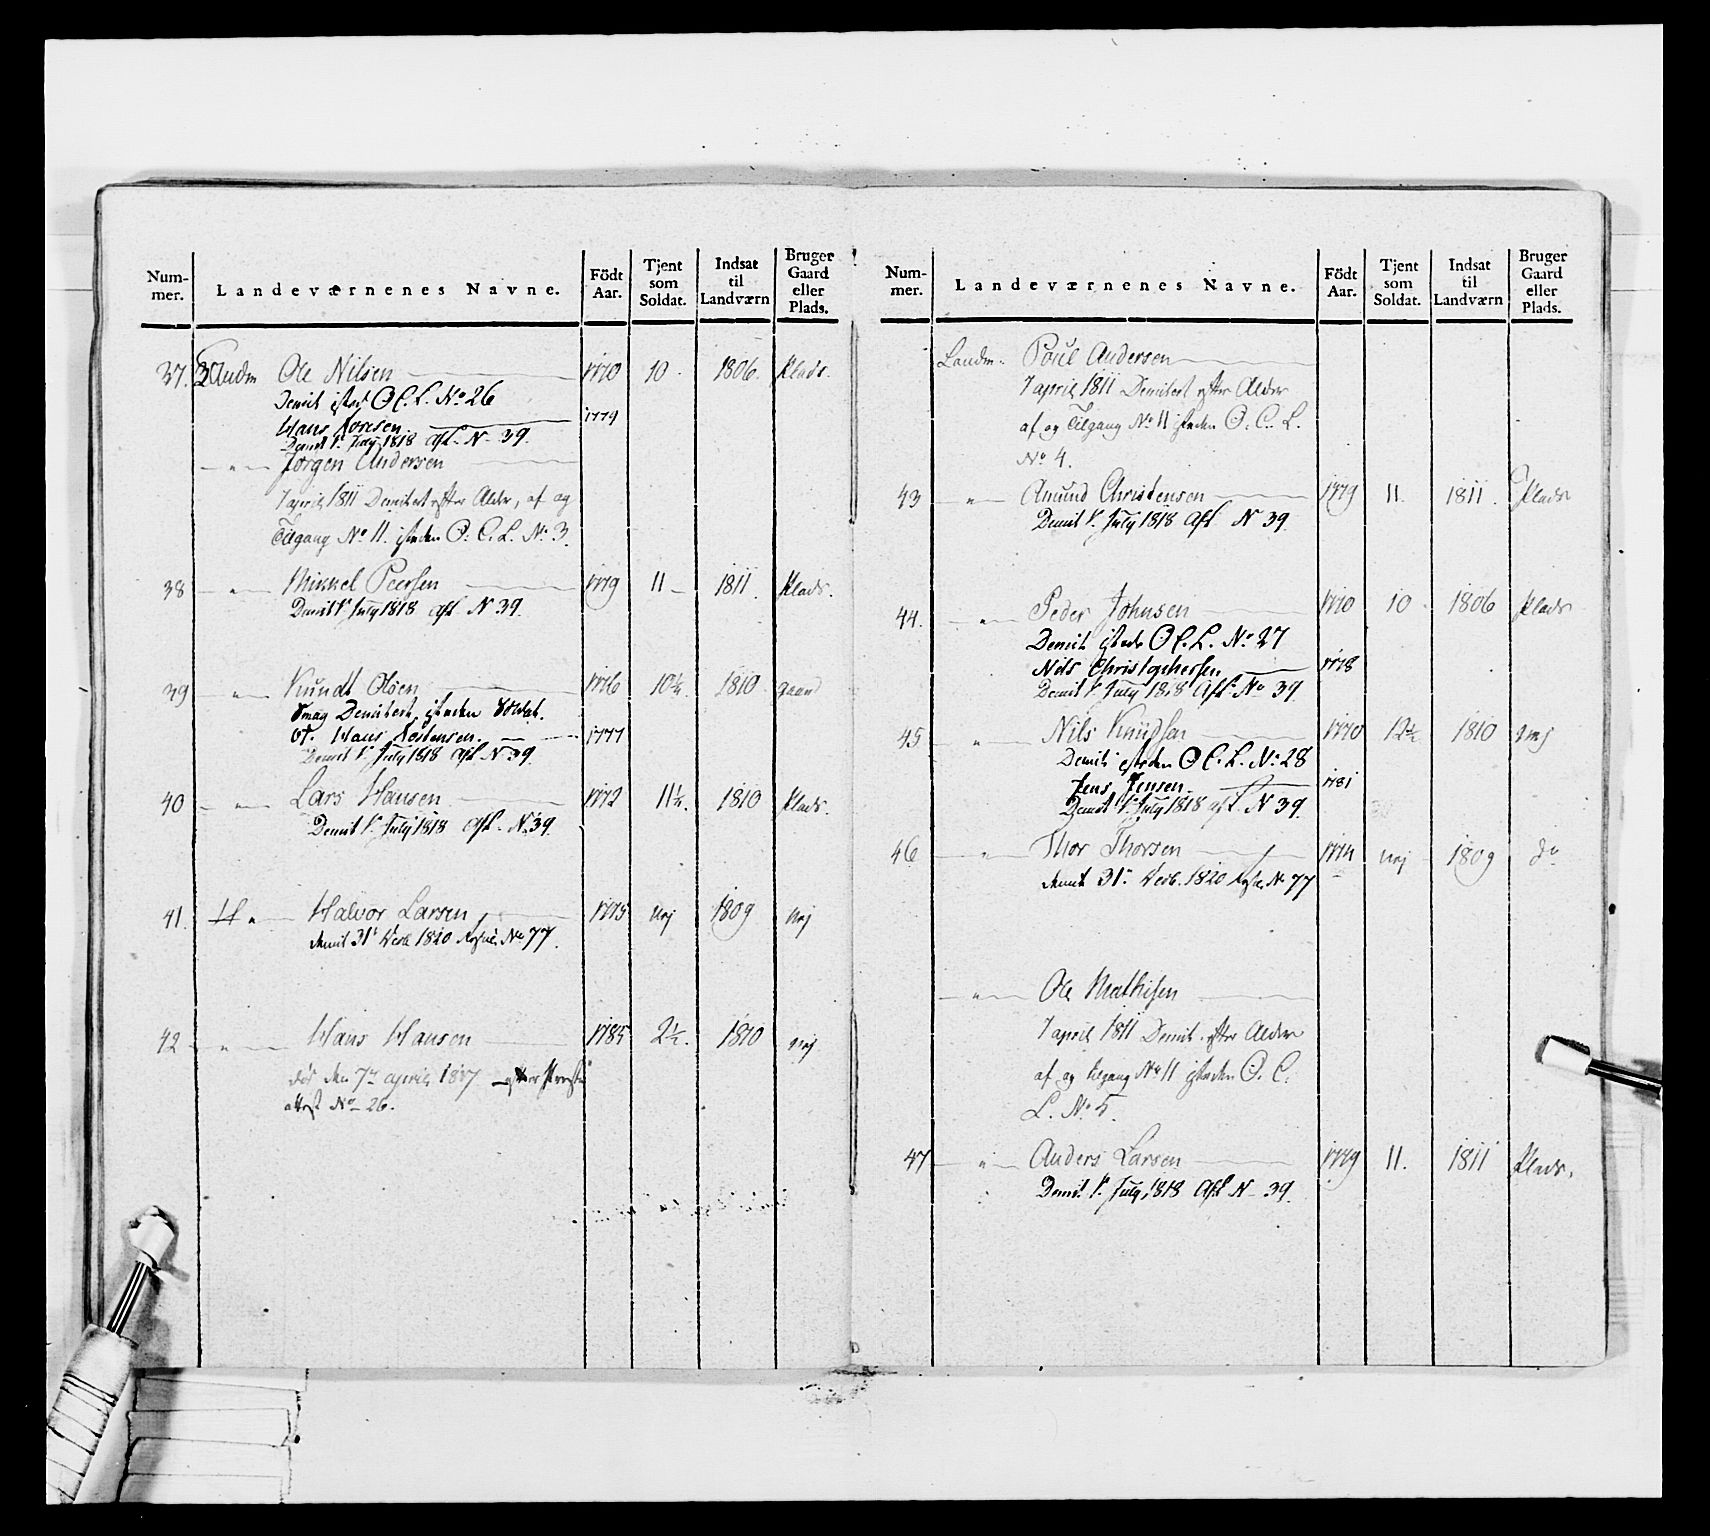 Num-
mer.
Landeværnenes Navne.
Födt
Aar.
Tjent
som
Soldat.
Indsat
til
Landværn
Bruger
Gaard
eller
Plads.
37. Landm Ole Nilsen 1770 10 1806. Plads.
Demit isted O C. L. No 26
Hans Joresen 1779
Demit 1. July 1818 Afl. N 39.
" Jørgen Andersen
7 april 1811 Demitert efter Alder, af og
Tilgang No 11. isteden O. C. L. No 3.
38 " Mikkel Peersen 1779 11 1811. Plads.
Demit 1. July 1818 Afl. N 39.
39 " Knudt Olsen 1776 10½ 1810 gaard
Svag Demitert, isteden Soldat.
Hans Tostensen. 1777
Demit 1. July 1818 Afl N 39.
40 " Lars Hansen 1772 11½. 1810 Plads.
Demit 1. July 1818 Afl. N. 39
41. " Halvor Larsen 1775 nej 1809 nej
demit 31. 1820 No 77.
42 " Hans Hansen 1785 2½. 1810 nej
død den 7de april 1817 efter Præste
attest No 26.
Num-
mer.
Landeværnenes Navne.
Födt
Aar.
Tjent
som
Soldat.
Indsat
til
Landværn
Bruger
Gaard
eller
Plads.
Landm. Poul Andersen
7 april 1811 Demitert efter Alder
af og Tilgang No 11 isteden O. C. L.
No 4.
43 " Amund Christensen 1779 11. 1811. Plads
Demit 1. July 1818 Afl N 39.
44. " Peder Johnsen 1770 10 1806 Plads
Demit istede O C. L. No 27
Nils Christophersen 1778
Demit 1. July 1818 Afl. No 39
45 " Nils Knudsen 1770 12½ 1810 nej
Demit isteden O C. L. No 28
Jens Jensen. 1781
Demit 1. July 1818 Afl. N 39.
46 " Thor Thorsen 1774 nej 1809 do
demit 31. 1820 No 77
" Ole Mathisen
7 april 1811 Demit. efter Alder
af og tilgang No 11 isteden O. C.
L. No 5.
47 " Anders Larsen 1779 11. 1811 Plads.
Demit. 1. July 1818 Afl N 39.